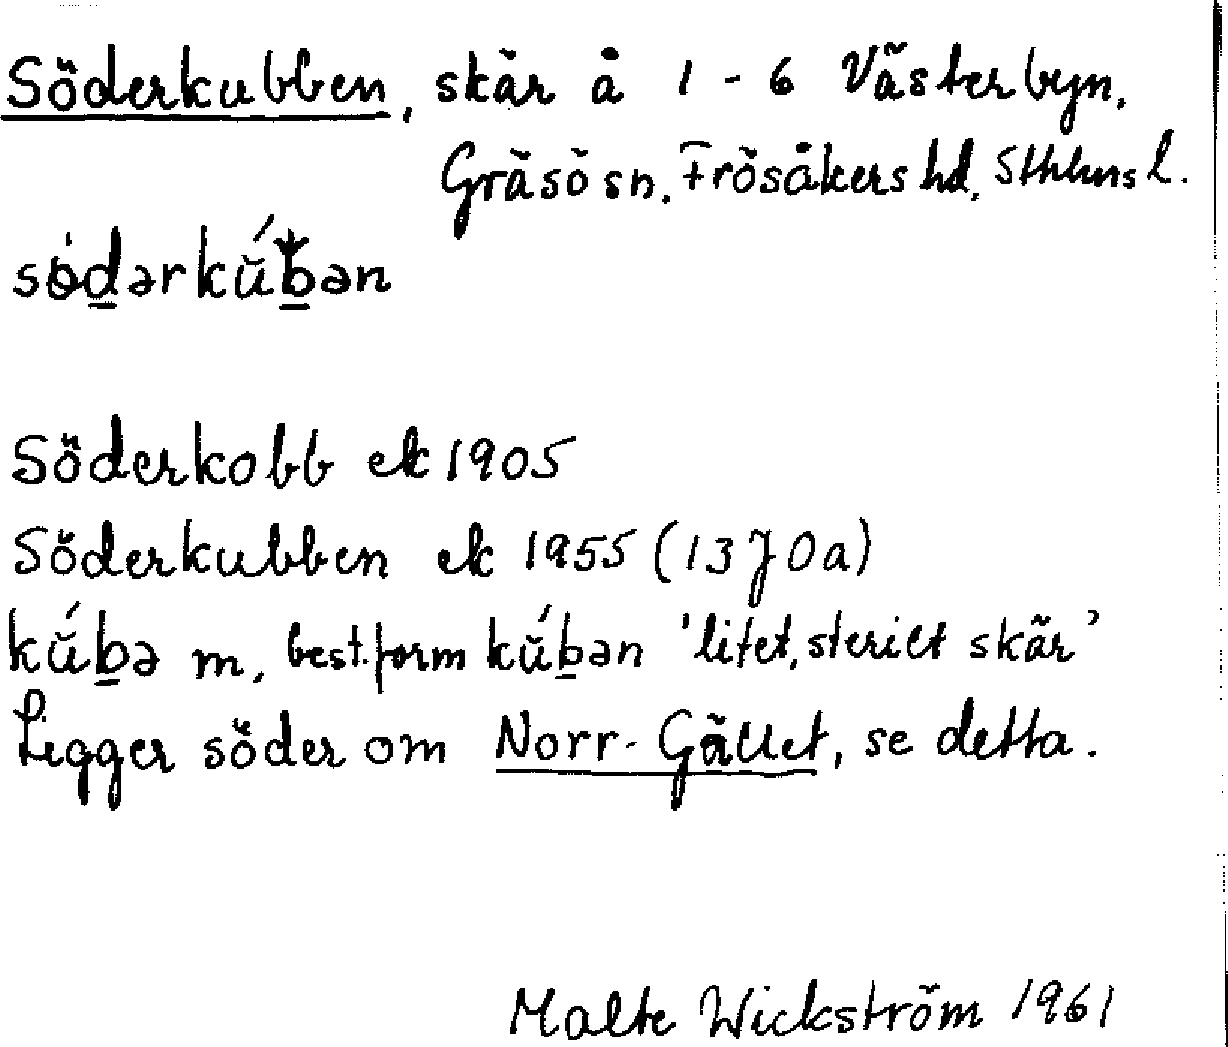 Söderkubben, skär å 1 - 6 Västerbyn,
Gräsö sn, Frösåkers hd, Sthlms l.
södərkú̆b̲ən
Söderkobb ek 1905
Söderkubben ek 1955 (13J0a)
kú̆b̲ə m, best. form kú̆b̲ən 'litet, sterilt skär'
Ligger söder om Norr-Gället, se detta.
Malte Wickström 1961